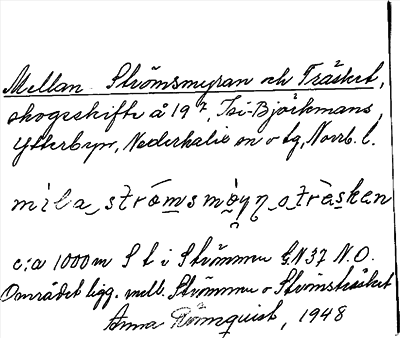 Mellan Strömsmyran och Träsket,
skogsskifte å 19², Isi-Björkmans,
Ytterbyn, Nederkalix sn o tg, Norrb. l.
mìla strömsmỳ̀n o trèsken
c:a 1000 m S t i Strömmen G.N 37 N.O.
Området ligg. mell. Strömmen o Strömsträsket
Anna Römquist, 1948